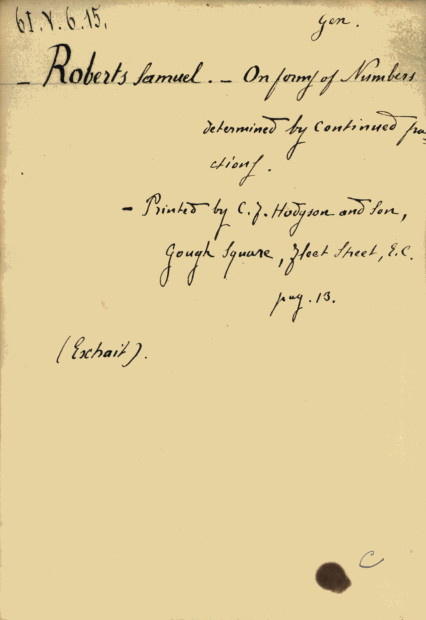 61.V.6.15.
gen.
- Roberts Samuel. - On forms of Numbers
determined by Continued fra-
ctions.
- Printed by C. F. Hodgson and Son,
Gough Square, Fleet Street, E.C.
pag. 13.
(Exhait).
C